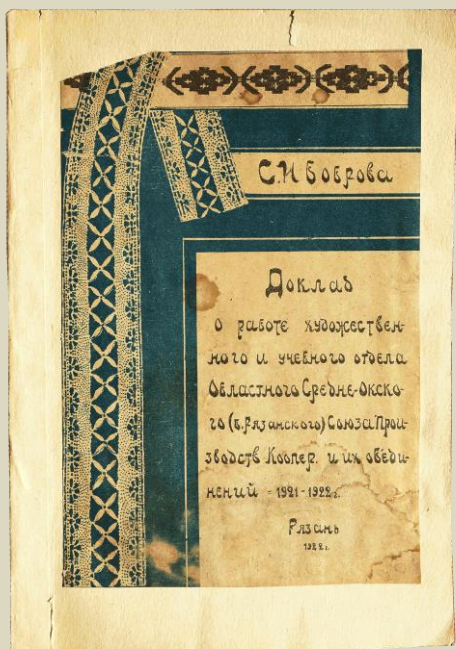 С. И Боброва
Доклад
о работе художествен-
ного и учебного отдела
Областного Средне-Окско-
го (б. Рязанского) Союза Прои-
зводств Коопер. и их обеди-
нений = 1921-1922 г.
Рязань
1922 г.